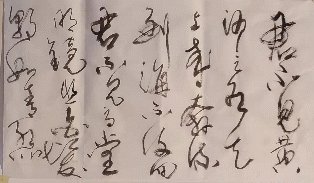 君不見黃
河之水天
上來奔流
到海不復回
君不見高堂
明鏡悲白髮
朝如青絲